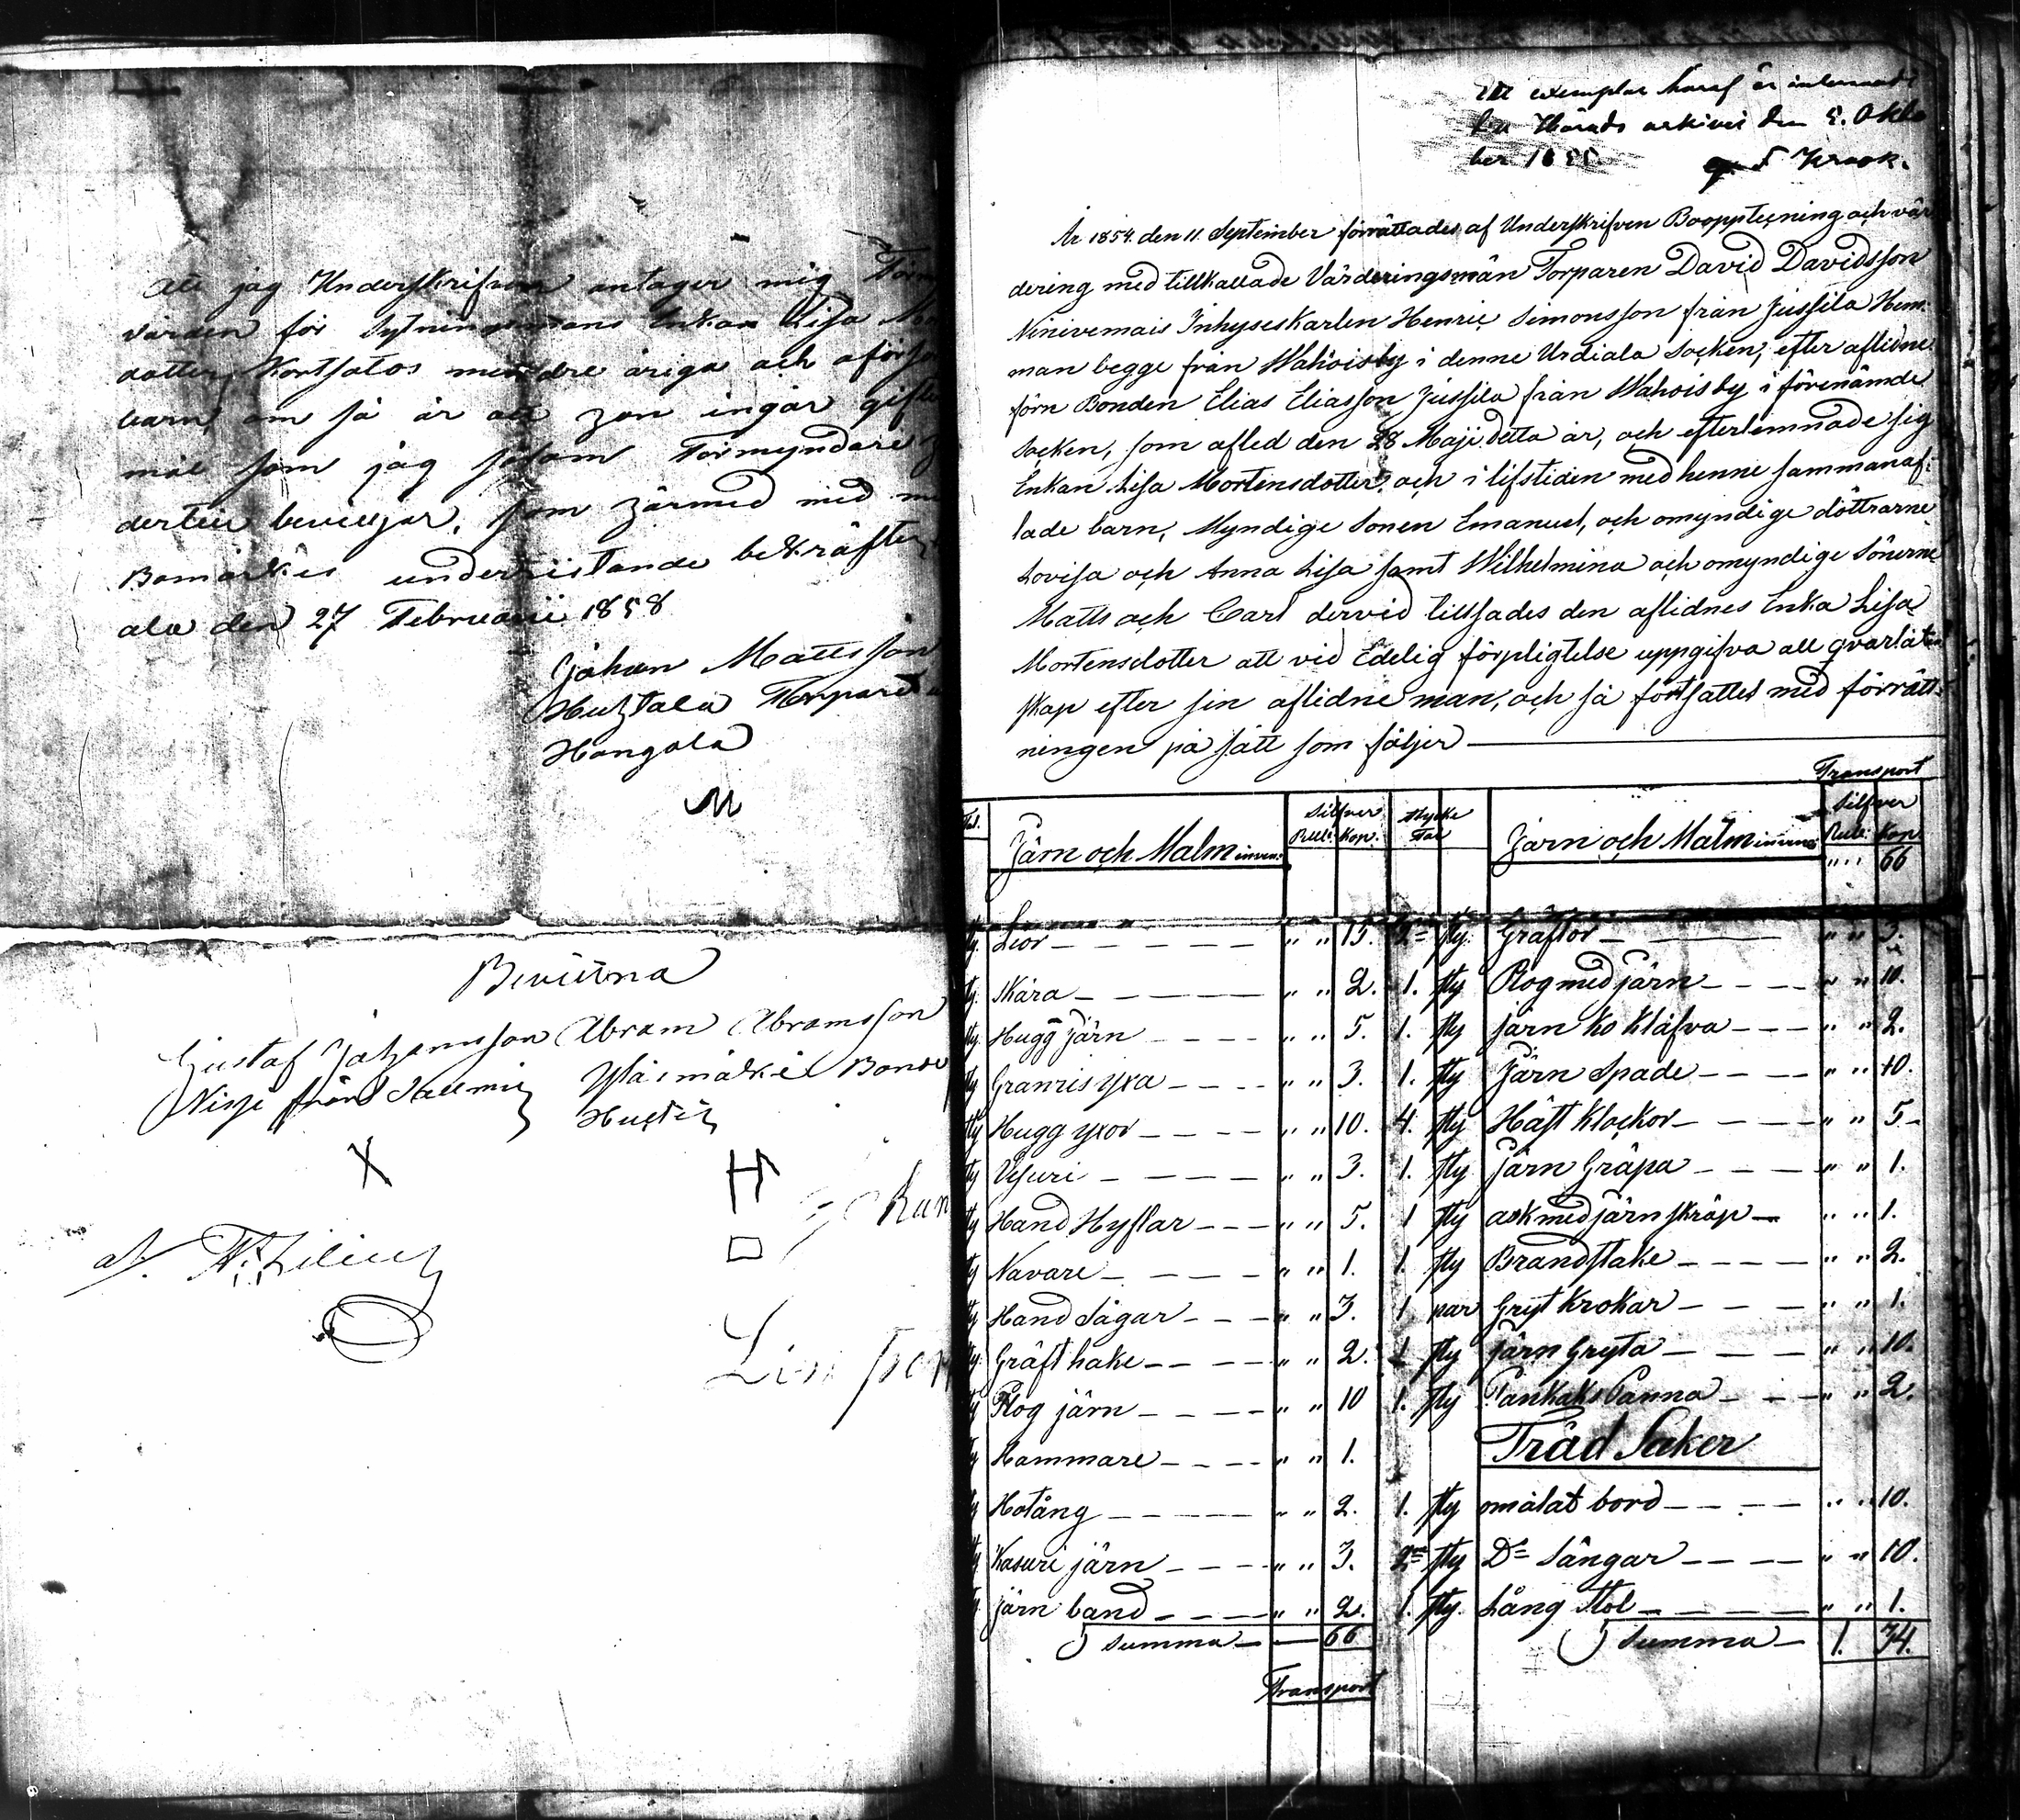 Att jag Underskrifven antager mig Förm
vården för Sytningsmans Enkan Lisa
dotter Kortsatos mindre åriga och oförs
barn, om så är att zon ingår gifte
mål som jag såsom Förmyndare
dertill bevilljar, som zärmed med
Bomärkes undersistande bekräftes
ala den 27 Februarii 1858
Johan Mattsson
Huhtala Torpare
Hongola
M
Bevittna
Gustaf Johansson Abram Abramsson
Nisje från Salmi Yläsmäki Bonde
Hustii
X
af.
Att exemplar haraf är inlemnadt
Härads arkivet den 8. Okto
ber 1855. F Krook.
År 1854. den 11. September förrättades af Underskrifven Boupptecning och vär
dering med tillkallade Värderingsmän Torparen David Davidsson
Ninivemais Inhyseskarlen Henric Simonsson från Jussila Hem.
man begge från Wahoisby i denne Urdiala Socken, efter aflidne
förn Bonden Elias Eliasson Jussila från Wahoisby i förenämde
Socken, som afled den 28 Maji detta år, och efterlemnade sig
Enkan Lisa Mortensdotter, och i lifstiden med henne sammanaf-
lade barn, Myndige Sonen Emanuel, och omyndige döttrarne
Lovisa och Anna Lisa samt Wilhelmina och omyndige Sönerne
Matts och Carl dervid tillsades den aflidnes Enka Lisa
Mortensdotter att vid Edelig förpligtelse uppgifva all qvarlåten
skap efter sin aflidne man, och så fortsattes med förrätt-
ningen på sätt som följer
Transport
Tal. Järn och Malm inven: Silfver Rub: Kop. Stycke Tal Järn och Malm invent: Silfver Rub: Kop.
" " 66
Lior " " 15. 2ne sty. Gräftor " " 5.
Skära " " 2. 1. sty Plog med järn " " 10.
Hugg järn " " 5. 1. sty järn Ko Klåfva " " 2.
Granris yxa " " 3. 1. sty Järn Spade " " 10.
Hugg yxor " " 10. 4. sty Häst Klockor " " 5
Vesuri " " 3. 1. sty Järn Gräpa " " 1.
Hand Hyflar " " 5. 1 sty ask med järn skräp " " 1.
Navare " " 1. 1. sty Brandstake " " 2.
Hand Sågar " " 3. 1. par Gryt Krokar " " 1.
Gräft hake " " 2. 1 sty Järn Gryta " " 10.
Plog järn " " 10 1. sty Pankaks Panna " " 2.
Hammare " " 1. Träd Saker
Hotång " " 2. 1. sty omålat bord " " 10.
Kasuri järn " " 3. 2ne sty Do Sängar " " 10.
järn band " " 2. 1. sty. Lång Stol " " 1.
Summa 66 Summa 1. 34.
Transport